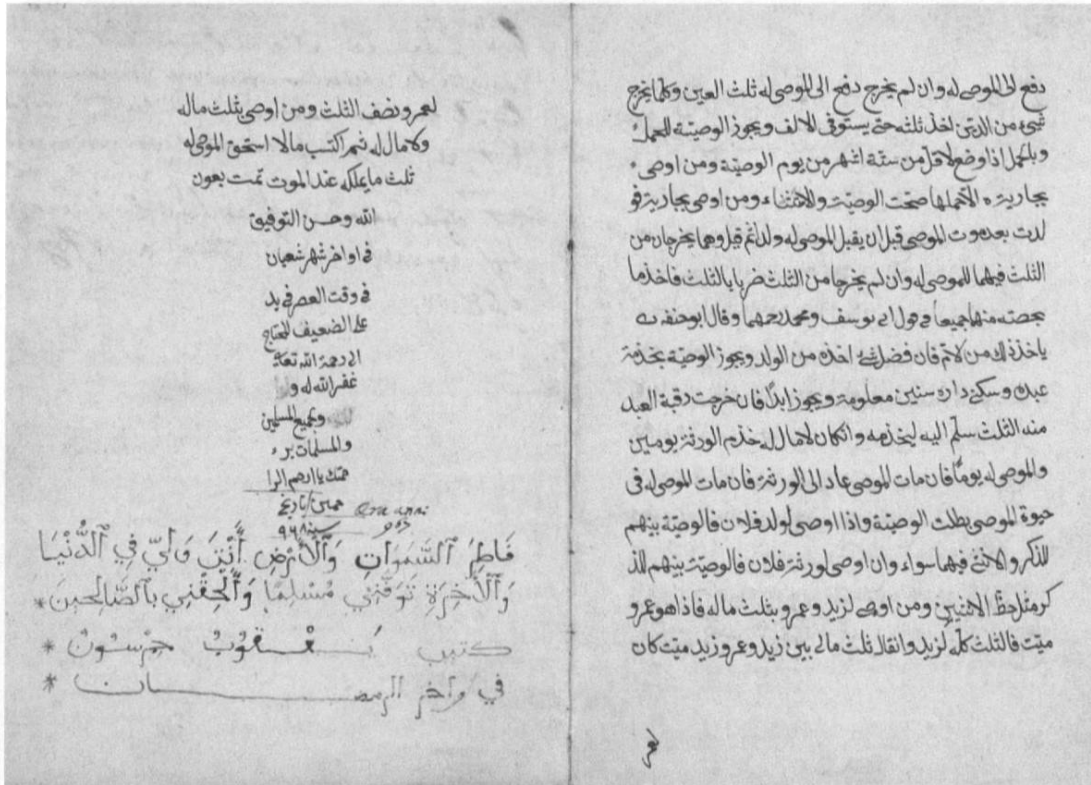 دفع الى الموصى له وان لم يخرج دفع الى الموصى له ثلث العين وكلما يخرج
شيء من الدين اخذ ثلثه حتى يستوفى الالف ويجوز الوصية للحمل
وبالحمل اذا وضع لاقل من ستة اشهر من يوم الوصية ومن اوصى
بجارية الا حملها صحت الوصية والاستثناء ومن اوصى بجارية فو
لدت بعد موت الموصى قبل ان يقبل الموصى له ولدا ثم قبل وهما يخرجان من
الثلث فهما للموصى له وان لم يخرجا من الثلث ضربا بالثلث فاخذ ما
بحصته منهما جميعا فى قول ابى يوسف ومحمد رحمهما وقال ابو حنيفة
ياخذ ذلك من الام فان فضل شئ اخذه من الولد ويجوز الوصية بخدمة
عبده وسكنى داره سنين معلومة ويجوز ابدًا فان خرجت رقبة العبد
منه الثلث سلّم اليه ليخدمه وانكان لا مال له خدم الورثة يومين
والموصى له يومًا فان مات الموصى عاد الى الورثة فان مات الموصى له فى
حيوة الموصى بطلت الوصية واذا اوصى لولد فلان فالوصية بينهم
للذكر والانثى فيهما سواء وان اوصى لورثة فلان فالوصية بينهم للذ
كر مثل حظ الانثيين ومن اوصى لزيد وعمرو بثلث ماله فاذا هو عمرو
ميت فالثلث كله لزيد وانقال ثلث مالى بين زيد وعمرو زيد ميت كان
لعمرو نصف الثلث ومن اوصى بثلث ماله
ولا مال له ثم اكتسب مالا استحق الموصى له
ثلث ما يملكه عند الموت تمت بعون
الله وحسن التوفيق
فى اواخر شهر شعبان
فى وقت العصر فى يد
على الضعيف المحتاج
الى رحمة الله تعالى
غفر الله له و
وبجميع المسلمين
والمسلمات بر
حمتك يا ارحم الرا
حمين تاريخ
سنة ٩٦٨
فَاطِرَ ٱلسَّمَوَاتِ وَٱلْأَرْضِ أَنْتَ وَلِيّ فِي ٱلدُّنْيَا
وَٱلْأَخِرَةِ تَوَفَّنِي مُسْلِمًا وَأَلْحِقْنِي بِٱلصَّالِحِينَ *
كتبه يَعْقُوبْ *
في واخر الرمضان *